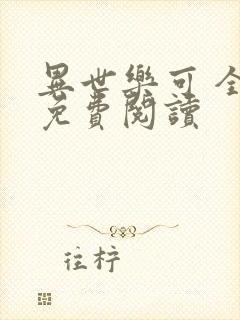 異世樂可全
免費閱讀
往柠